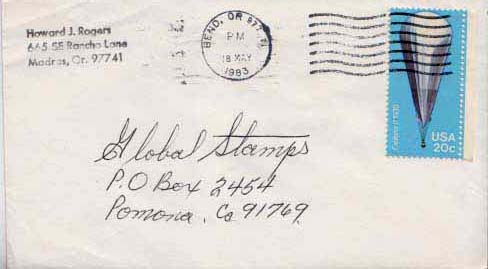 Howard J. Rogers
665 SE Rancho Lane
Madras, Or. 97741
BEND, OR 977
PM
18 MAY
1983
Explorer II 1935
USA
20c
Global Stamps
P.O Box 2454
Pomona, Ca 91769